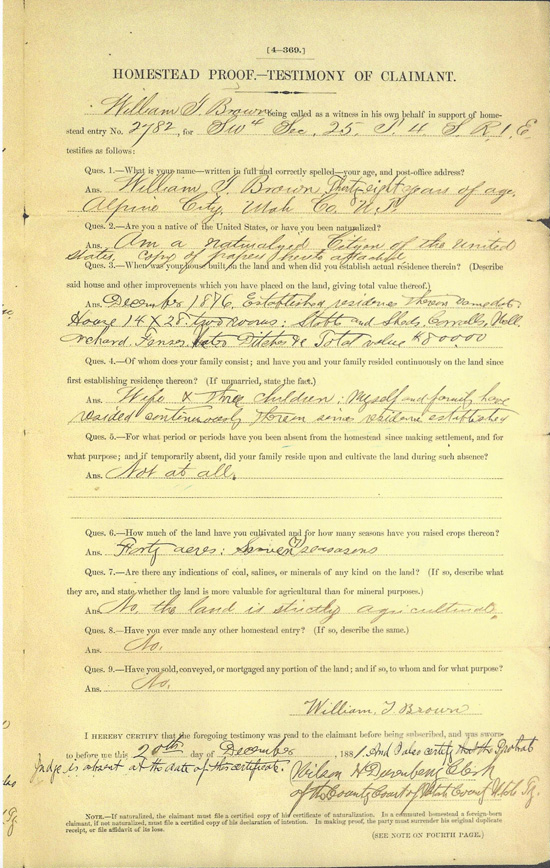 [4—369.]
HOMESTEAD PROOF.—TESTIMONY OF CLAIMANT.
William J Brown being called as a witness in his own behalf in support of home-
stead entry No. 2782, for SW4 Sec. 25 T. 4 S R. 1 E
testifies as follows:
Ques. 1.—What is your name—written in full and correctly spelled—your age, and post-office address?
Ans. William J. Brown Thirty-eight years of age.
Alpine City, Utah Co. U.T.
Ques. 2.—Are you a native of the United States, or have you been naturalized?
Ans. Am a naturalized Citizen of the United
States, copy of papers hereto attached
Ques. 3.—When was your house built on the land and when did you establish actual residence therein? (Describe
said house and other improvements which you have placed on the land, giving total value thereof.)
Ans. December 1876. Established residence therein same date.
House 14 X 28. two rooms: Stable and Sheds, Corralls, Well
orchard, Fences, Ditches &c Total value $800 00
Ques. 4.—Of whom does your family consist; and have you and your family resided continuously on the land since
first establishing residence thereon? (If unmarried, state the fact.)
Ans. Wife & Three Children: Myself and family have
resided continuously therein since residence established
Ques. 5.—For what period or periods have you been absent from the homestead since making settlement, and for
what purpose; and if temporarily absent, did your family reside upon and cultivate the land during such absence?
Ans. Not at all.
Ques. 6.—How much of the land have you cultivated and for how many seasons have you raised crops thereon?
Ans. Forty acres: Seven seasons
Ques. 7.—Are there any indications of coal, salines, or minerals of any kind on the land? (If so, describe what
they are, and state whether the land is more valuable for agricultural than for mineral purposes.)
Ans. No, the land is strictly
Ques. 8.—Have you ever made any other homestead entry? (If so, describe the same.)
Ans. No.
Ques. 9.—Have you sold, conveyed, or mortgaged any portion of the land; and if so, to whom and for what purpose?
Ans. No.
William. J Brown
I HEREBY CERTIFY that the foregoing testimony was read to the claimant before being subscribed, and was sworn
to before me this 20th day of December, 1881. And I also certify that the Probate
Judge is absent at the date of this certificate.
Wilson H Clerk
of the County Court of Utah County Utah Ty.
NOTE.—If naturalized, the claimant must file a certified copy of his certificate of naturalization. In a commuted homestead a foreign-born
claimant, if not naturalized, must file a certified copy of his declaration of intention. In making proof, the party must surrender his original duplicate
receipt, or file affidavit of its loss.
(SEE NOTE ON FOURTH PAGE.)